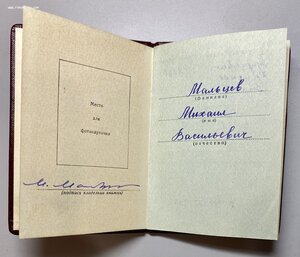 Место
для
фотокарточки
М. Мал
(подпись владельца книжки)
Мальцев
(фамилия)
Михаил
(имя)
Васильевич
(отчество)